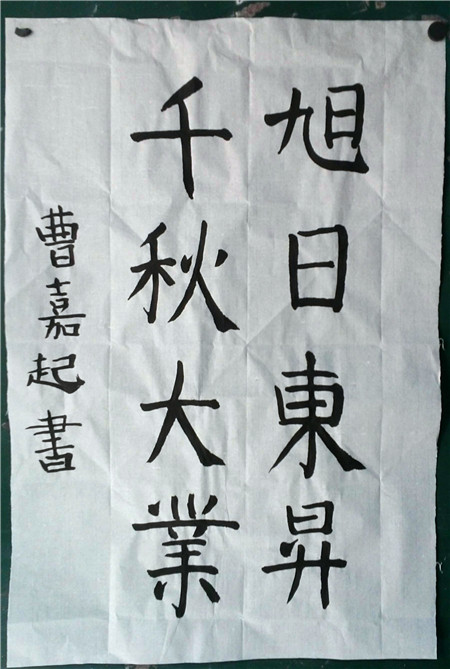 旭日東昇
千秋大業
曹嘉起書